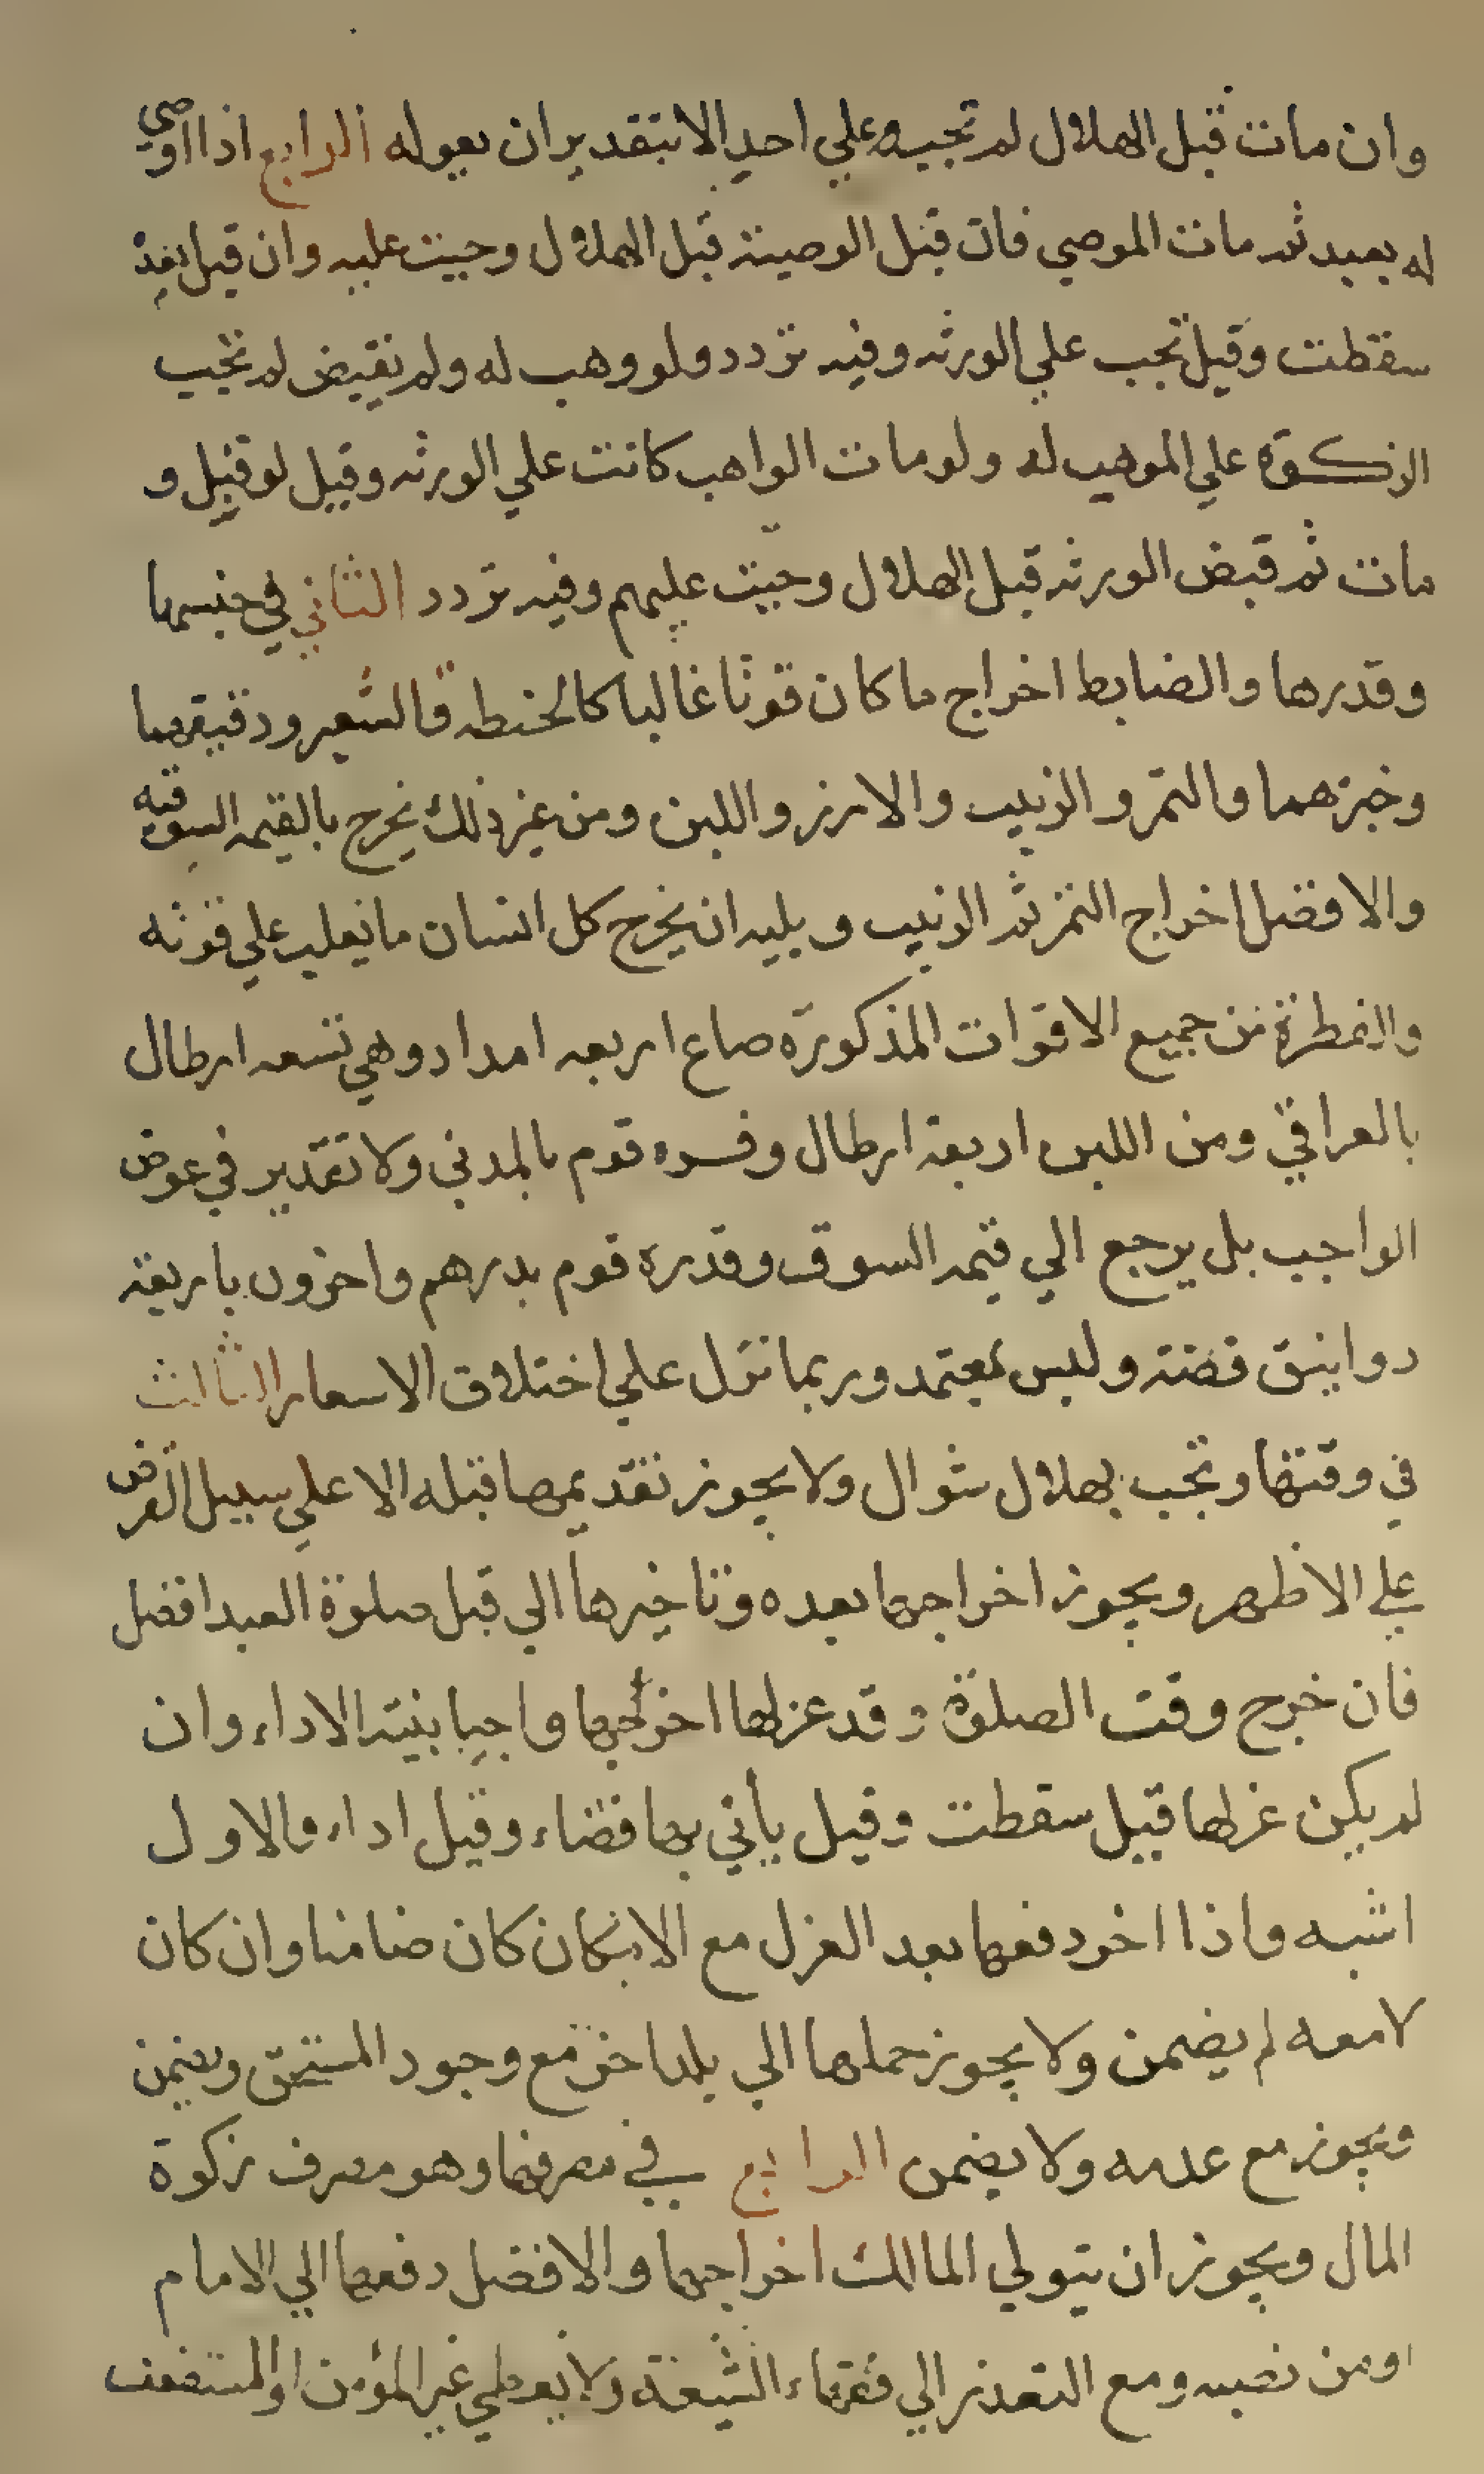 وان مات قبل الهلال لم تجب علي احد الا بتقدير ان يعوله الرابع اذا اوصي
له بعبد ثم مات الموصي فان قبل الوصية قبل الهلال وجبت عليه وان قبل بعده
سقطت وقيل تجب علي الورثه وفيه تردد ولو وهب له ولم يقبض لم تجب
الزكوة علي الموهب له ولو مات الواهب كانت علي الورثه وقيل لو قبل و
مات ثم قبض الورثه قبل الهلال وجبت عليهم وفيه تردد الثاني في جنسها
وقدرها والضابط اخراج ما كان قوتا غالبا كالحنطه والشعير ودقيقهما
وخبزهما والتمر والزبيب والارز واللبن ومن غير ذلك يخرج بالقيمه السوقيه
والافضل اخراج التمر ثم الزبيب ويليه ان يخرج كل انسان ما يغلب علي قوته
والفطرة من جميع الاقوات المذكورة صاع اربعه امداد وهي تسعه ارطال
بالعراقي ومن اللبن اربعة ارطال وفسره قوم بالمدني ولا تقدير في عوض
الواجب بل يرجع الي قيمه السوق وقدره قوم بدرهم واخرون باربعة
دوانيق فضة وليس بمعتمد وربما نزل علي اختلاف الاسعار الثالث
في وقتها وتجب بهلال شوال ولا يجوز تقديمها قبله الا علي سبيل القرض
علي الاظهر ويجوز اخراجها بعده وتاخيرها الي قبل صلوة العيد افضل
فان خرج وقت الصلوة وقد عزلها اخرجها واجبا بنية الاداء وان
لم يكن عزلها قيل سقطت وقيل يأتي بها قضاء وقيل اداء والاول
اشبه واذا اخر دفعها بعد العزل مع الامكان كان ضامنا وان كان
لا معه لم يضمن ولا يجوز حملها الي بلد اخر مع وجود المستحق ويضمن
ويجوز مع عدمه ولا يضمن الرابع في مصرفها وهو مصرف زكوة
المال ويجوز ان يتولي المالك اخراجها والافضل دفعها الي الامام
اومن نصبه ومع التعذر الي فقهاء الشيعة ولا يعطي غير المؤمن او المستضعف